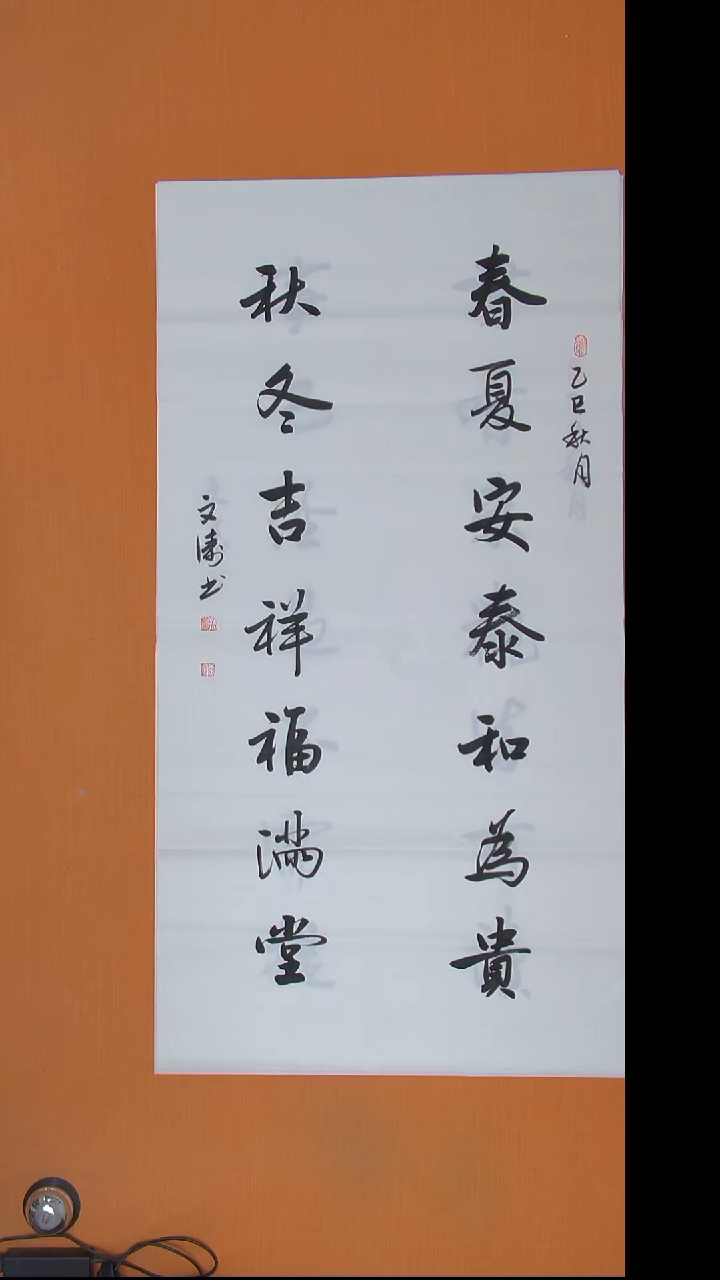 乙巳秋月
春夏安泰和為貴
秋冬吉祥福滿堂
文濤书